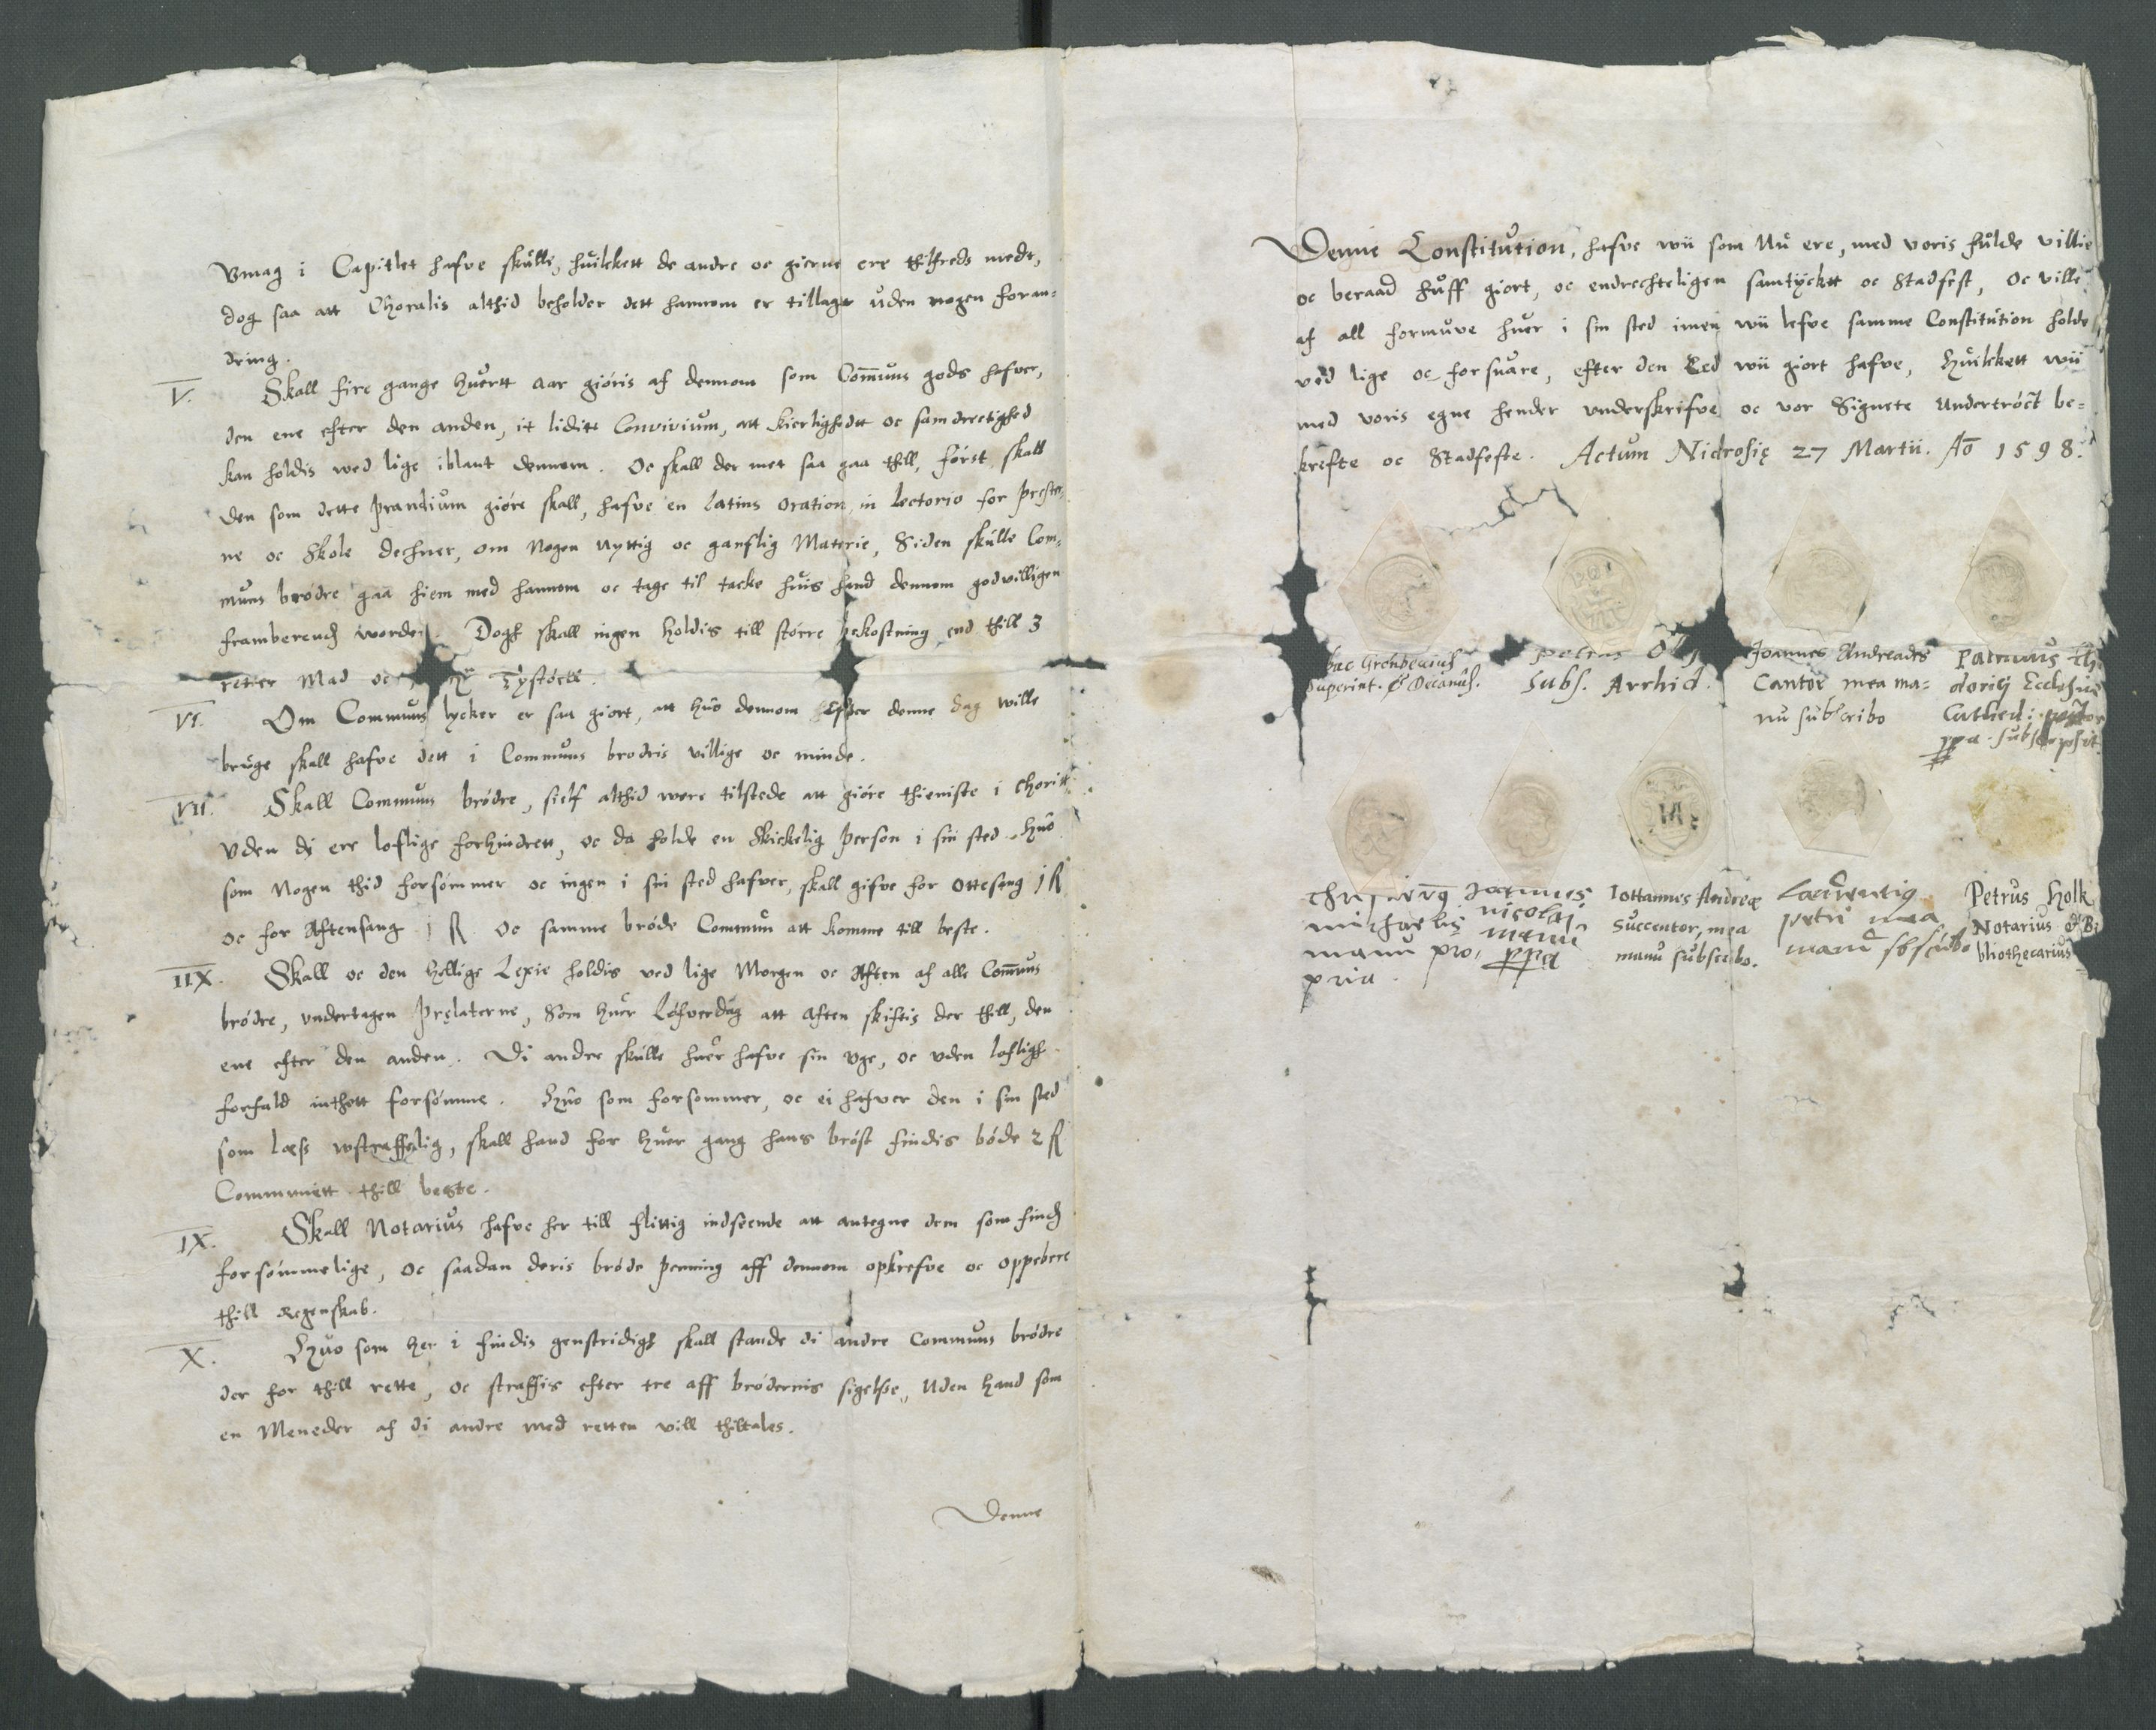 Vmag i Capitlet hafve skulle, huilckett de andre oc gierne ere thilfreds medt,
dog saa att Choralis althid beholder dett hannom er tillagt uden nogen foran-
dring.
V. Skall fire gange huertt aar giöris af dennom som Com̄uns gods hafver,
den ene efter den anden, it liditt Convivium, att kierlighedt oc samdrectighed
kan holdis wed lige iblant dennom. Oc skall der met saa gaa thill, först skall
den som dette prandium giöre skall, hafve en latins oration in lectorio for preste-
ne oc Skole dechner, om nogen nyttig oc gaflig Materie, Siden skulle Com-
muns brödre gaa hiem med hannom oc tage til tacke huis hand dennom godvilligen
framberend worder. Dogh skall ingen holdis till större bekostning end thill 3
retter Mad oc Tystöell.
VI. Om Communs lycker er saa giort, att huo dennom Efter denne dag wille
bruge skall hafve dett i Communs brodris villige oc minde.
VII. Skall Communs brödre, sielf althid were tilstede att giöre thieniste i Choritt
Vden di ere loflige forhindrett, oc da holde en skickelig person i sin sted. Huo
som nogen thid forsömmer oc ingen i sin sted hafver, skall gifve for ottesang j ß
oc for Aftensang j ß oc samme bröde Commun att komme till beste.
IIX. Skall oc den hellige Lexie holdis ved lige Morgen oc Aften af alle Com̄uns
brödre, undertagen Pręlaterne, Som huer Löfverdag att aften skiftis der thill, den
ene efter den anden. Di andre skulle huer hafve sin uge, oc uden lofligh
forfald inthett forsömme. Huo som forsommer, oc ei hafver den i sin sted
som læss ustraffelig, skall hand for huer gang hans bröst findis böde 2 ß
Communett thill beste.
IX. Skall Notarius hafve her till flittig indseende att antegne dem som find
forsömmelige, oc saadan deris bröde penning aff dennom opkrefve oc oppebere
thill Regenskab.
X. Huo som her i findis genstridigh skall stande di andre Communs brödre
der for thill rette, oc straffis efter tre aff brödernis sigelsse, Uden hand som
en Meneder af di andre med retten vill thiltales.
Denne
Denne Constitution, hafve wii som Nu ere, med voris fulde villie
oc beraad huff giort, oc endrechteligen samtyckt oc Stadfest, Oc ville
af all formuve huer i sin sted imen wii lefve samme Constitution holde
ved lige oc forsuare, efter den Eed wii giort hafve, Huilckett wii
med voris egne hender underskrifve oc vor Signete Undertröct be-
krefte oc Stadfeste. Actum Nidrosię 27 Martii. Aō 1598.
Superint. & Decanus.
Petrus
Subs. Archid.
Joannes Andreades
Cantor mea ma-
nu subscribo
Palmus
Ecclesiæ
Cathed: pastor
ppa subscripsit
michaelis
manu pro-
pria.
Joannes
nicolai
manu
ppa
Iohannes Andreæ
Succentor, mea
manu subscribo.
Laurentig
petri mea
manu sbscribo
Petrus Holk
Notarius & Bi
bliothecarius